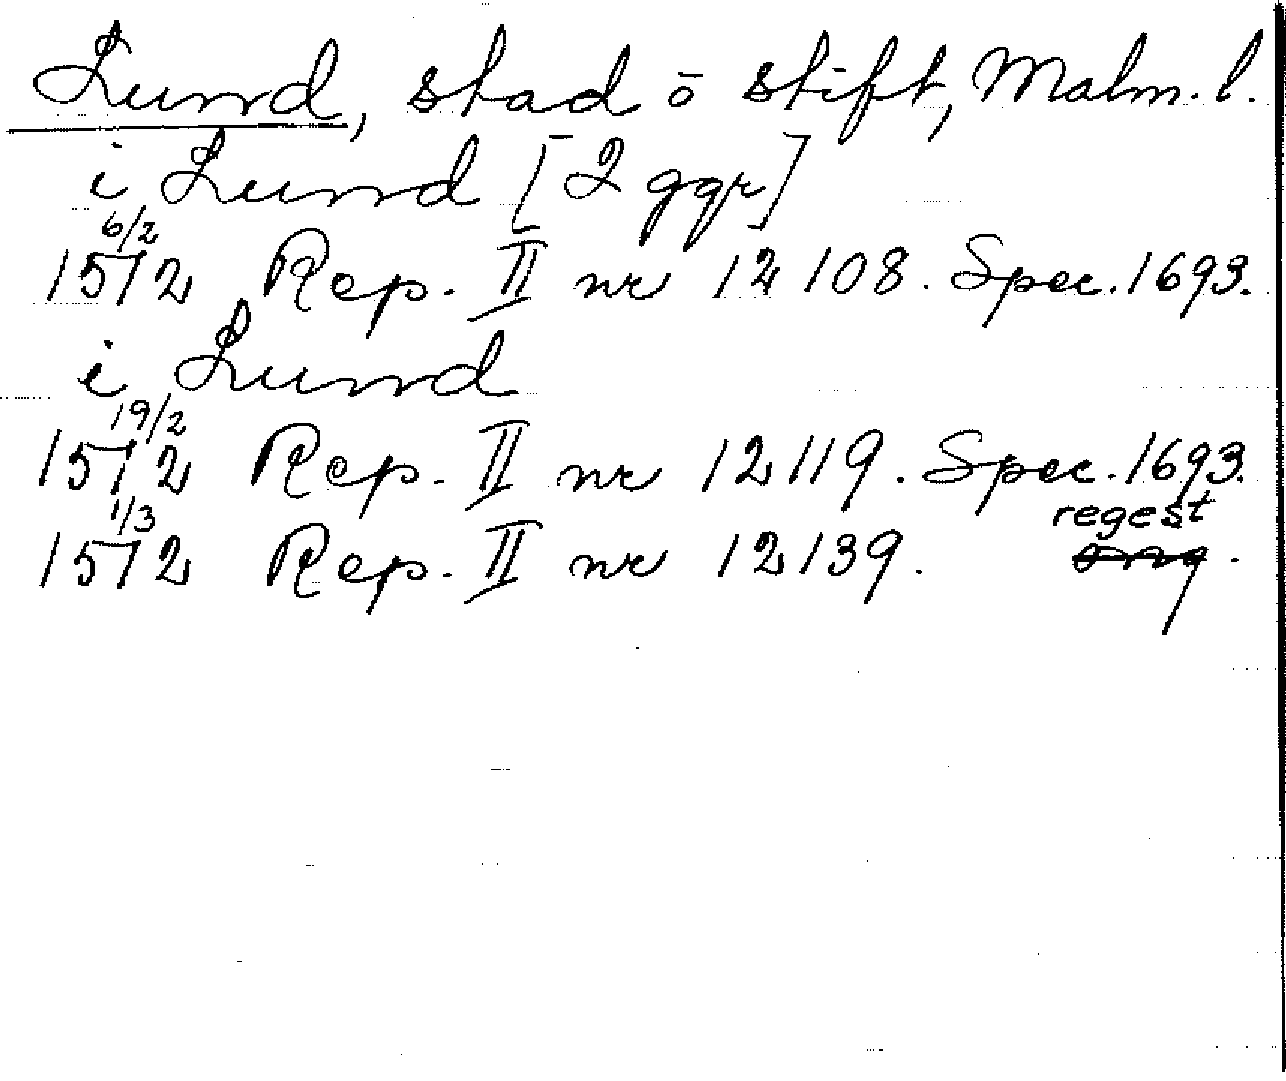 Lund, stad o stift, Malm. l.
i Lund [2 ggr]
6/2
1572 Rep. II nr 12108. Spec. 1693.
i Lund
19/2
1572 Rep. II nr 12119. Spec. 1693.
1/3 regest
1572 Rep. II nr 12139.